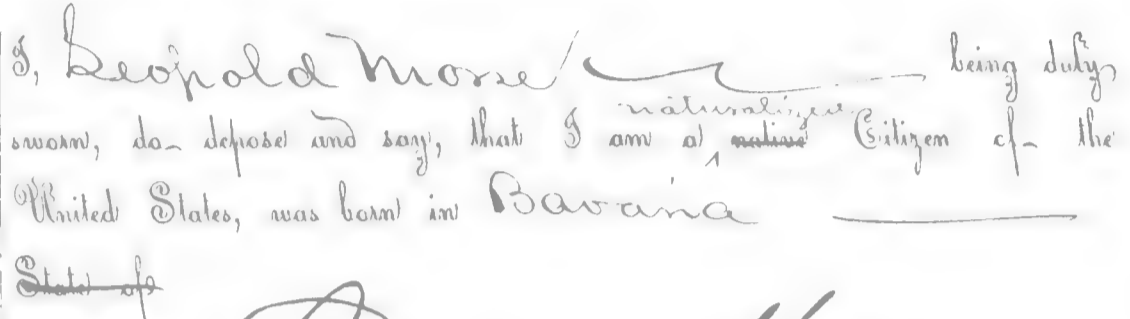 I, Leopold Morse being duly
sworn, do depose and say, that I am a naturalized native Citizen of the
United States, was born in Bavaria
State of